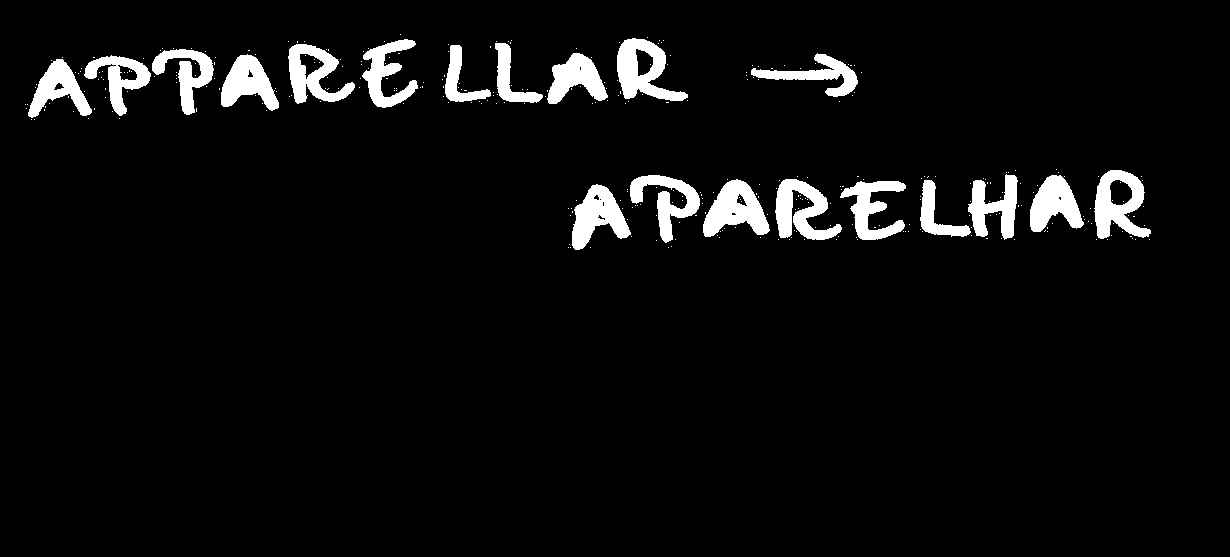 APPARELLAR →
APARELHAR